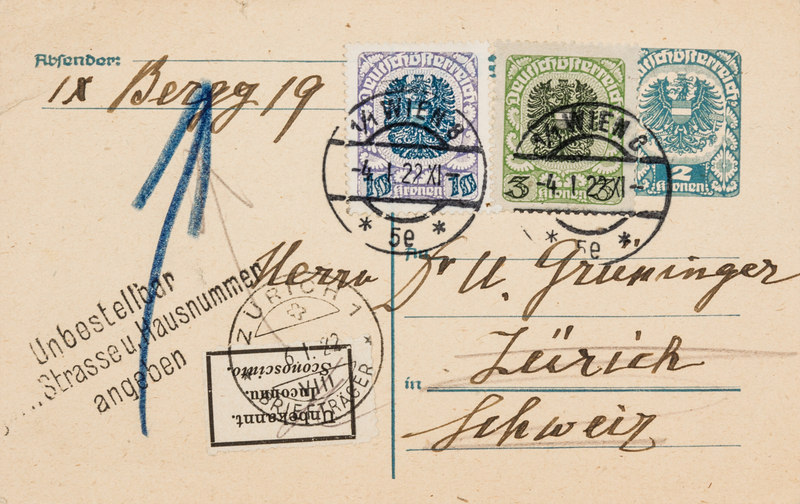 Absender:
IX Bergg 19
Deutschösterreich
10 Kronen 10
Deutschösterreich
3 Kronen 3
Deutschösterreich
2
Kronen
1/1 WIEN 8
-4. I. 22 XI-
* 5e *
1/1 WIEN 8
-4. I. 22 XI-
* 5e *
An
Herrn Dr U. Grüninger
in Zürich
Schweiz
Unbestellbar
Strasse u. Hausnummer
angeben
ZÜRICH 1
6. I. 22
VIII
BRIEFTRÄGER
Unbekannt.
Inconnu.
Sconosciuto.